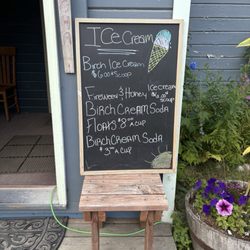 ICe Cream
Birch ICe Cream
$6.00 a Scoop
Fireweed & Honey
ICe Cream
$6.00 a Scoop
BIRCH CREAM SODA
FLOATS $8.00 a Cup
BIRCH CREAM SODA
$3.00 a Cup